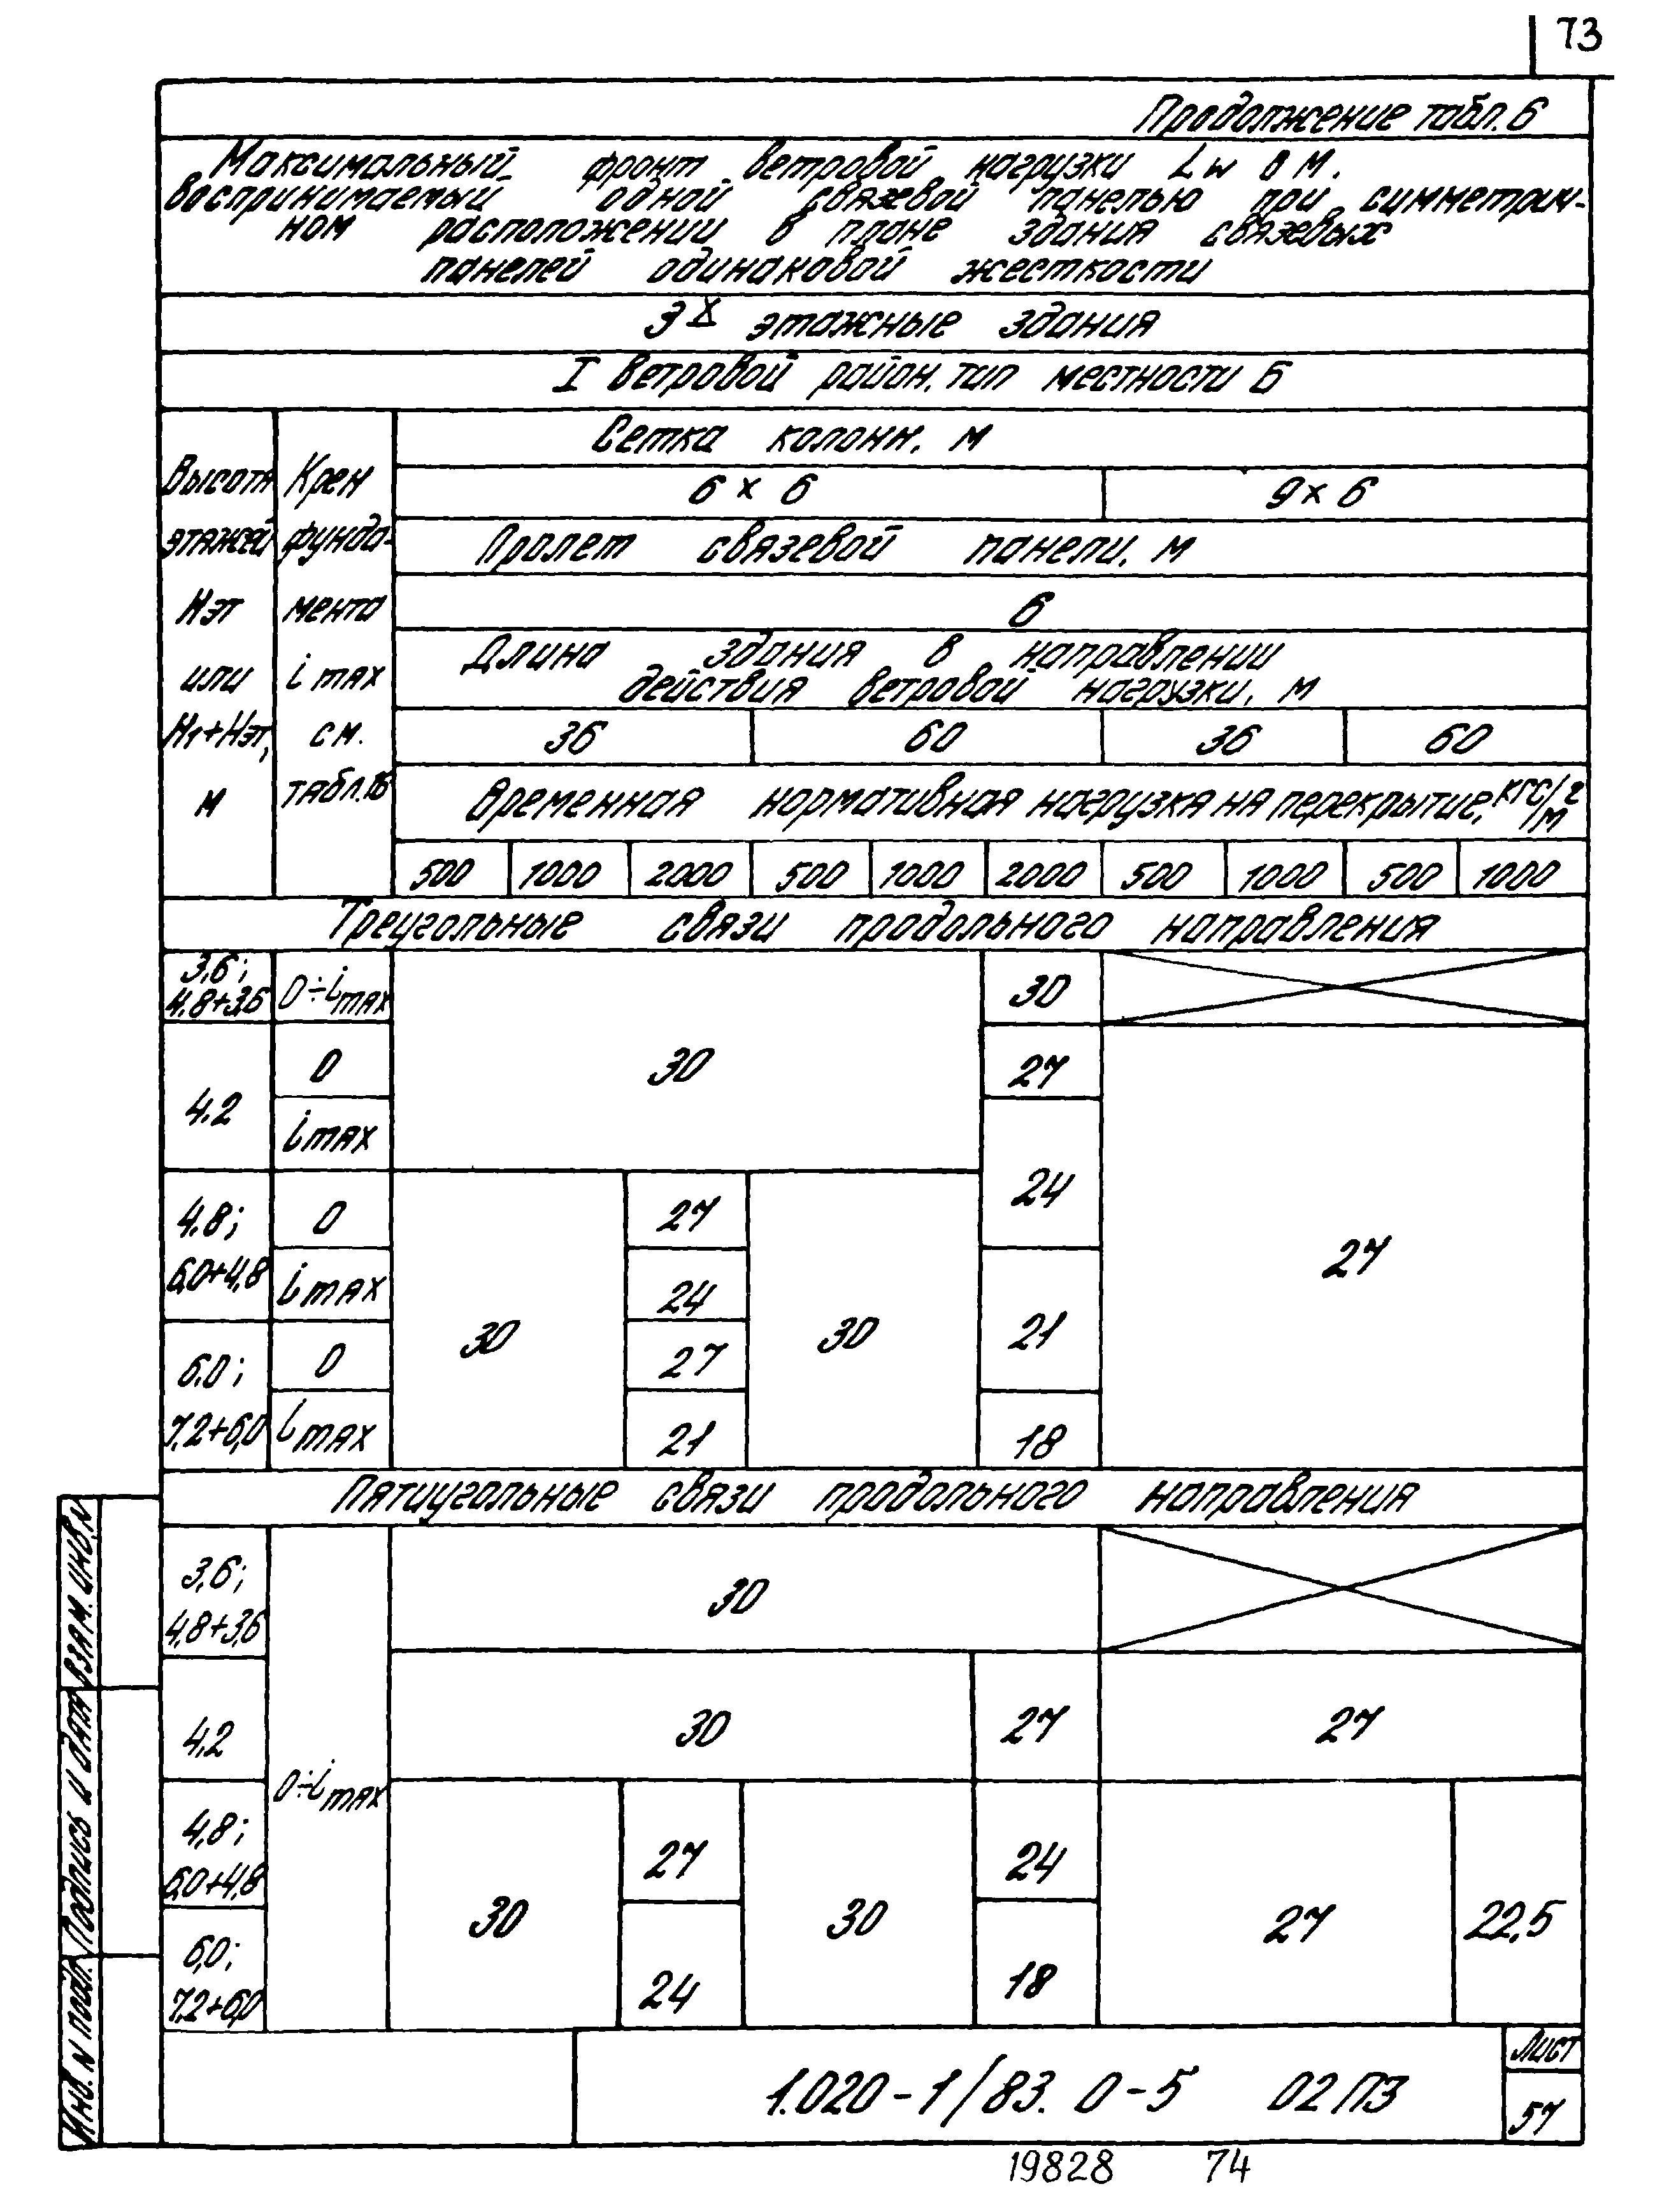 73
Продолжение табл. 6
Максимальный фронт ветровой нагрузки Lw в м.
воспринимаемый одной связевой панелью при симметрич-
ном расположении в плане здания связевых
панелей одинаковой жесткости
3х этажные здания
I ветровой район, тип местности Б
Высота
этажей
Нэт
или
Н1+Нэт,
м
Крен
фунда-
мента
i max
см.
табл.16
Сетка колонн, м
6 × 6
9 × 6
Пролет связевой панели, м
6
Длина здания в направлении
действия ветровой нагрузки, м
36 60 36 60
Временная нормативная нагрузка на перекрытие, кгс/м2
500 1000 2000 500 1000 2000 500 1000 500 1000
Треугольные связи продольного направления
3,6;
4.8+3,6
0÷imax
30
30
4.2
0
imax
27
24
4.8;
6,0+4,8
0
imax
30
27
24
30
21
27
6,0;
7,2+6,0
0
imax
27
21
18
Пятиугольные связи продольного направления
3,6;
4,8+3,6
0÷imax
30
4,2
30
27
27
4,8;
6,0+4,8
30
27
30
24
27
22,5
6,0;
7,2+6,0
24
18
Взам. инв. N
Подпись и дата
Инв. N подл.
1.020-1/83. 0-5 02 ПЗ
Лист
57
19828 74